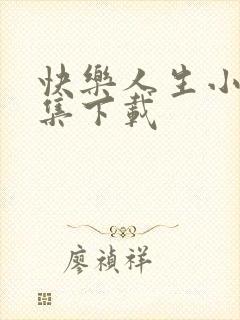 快樂人生小
集下載
廖禎祥